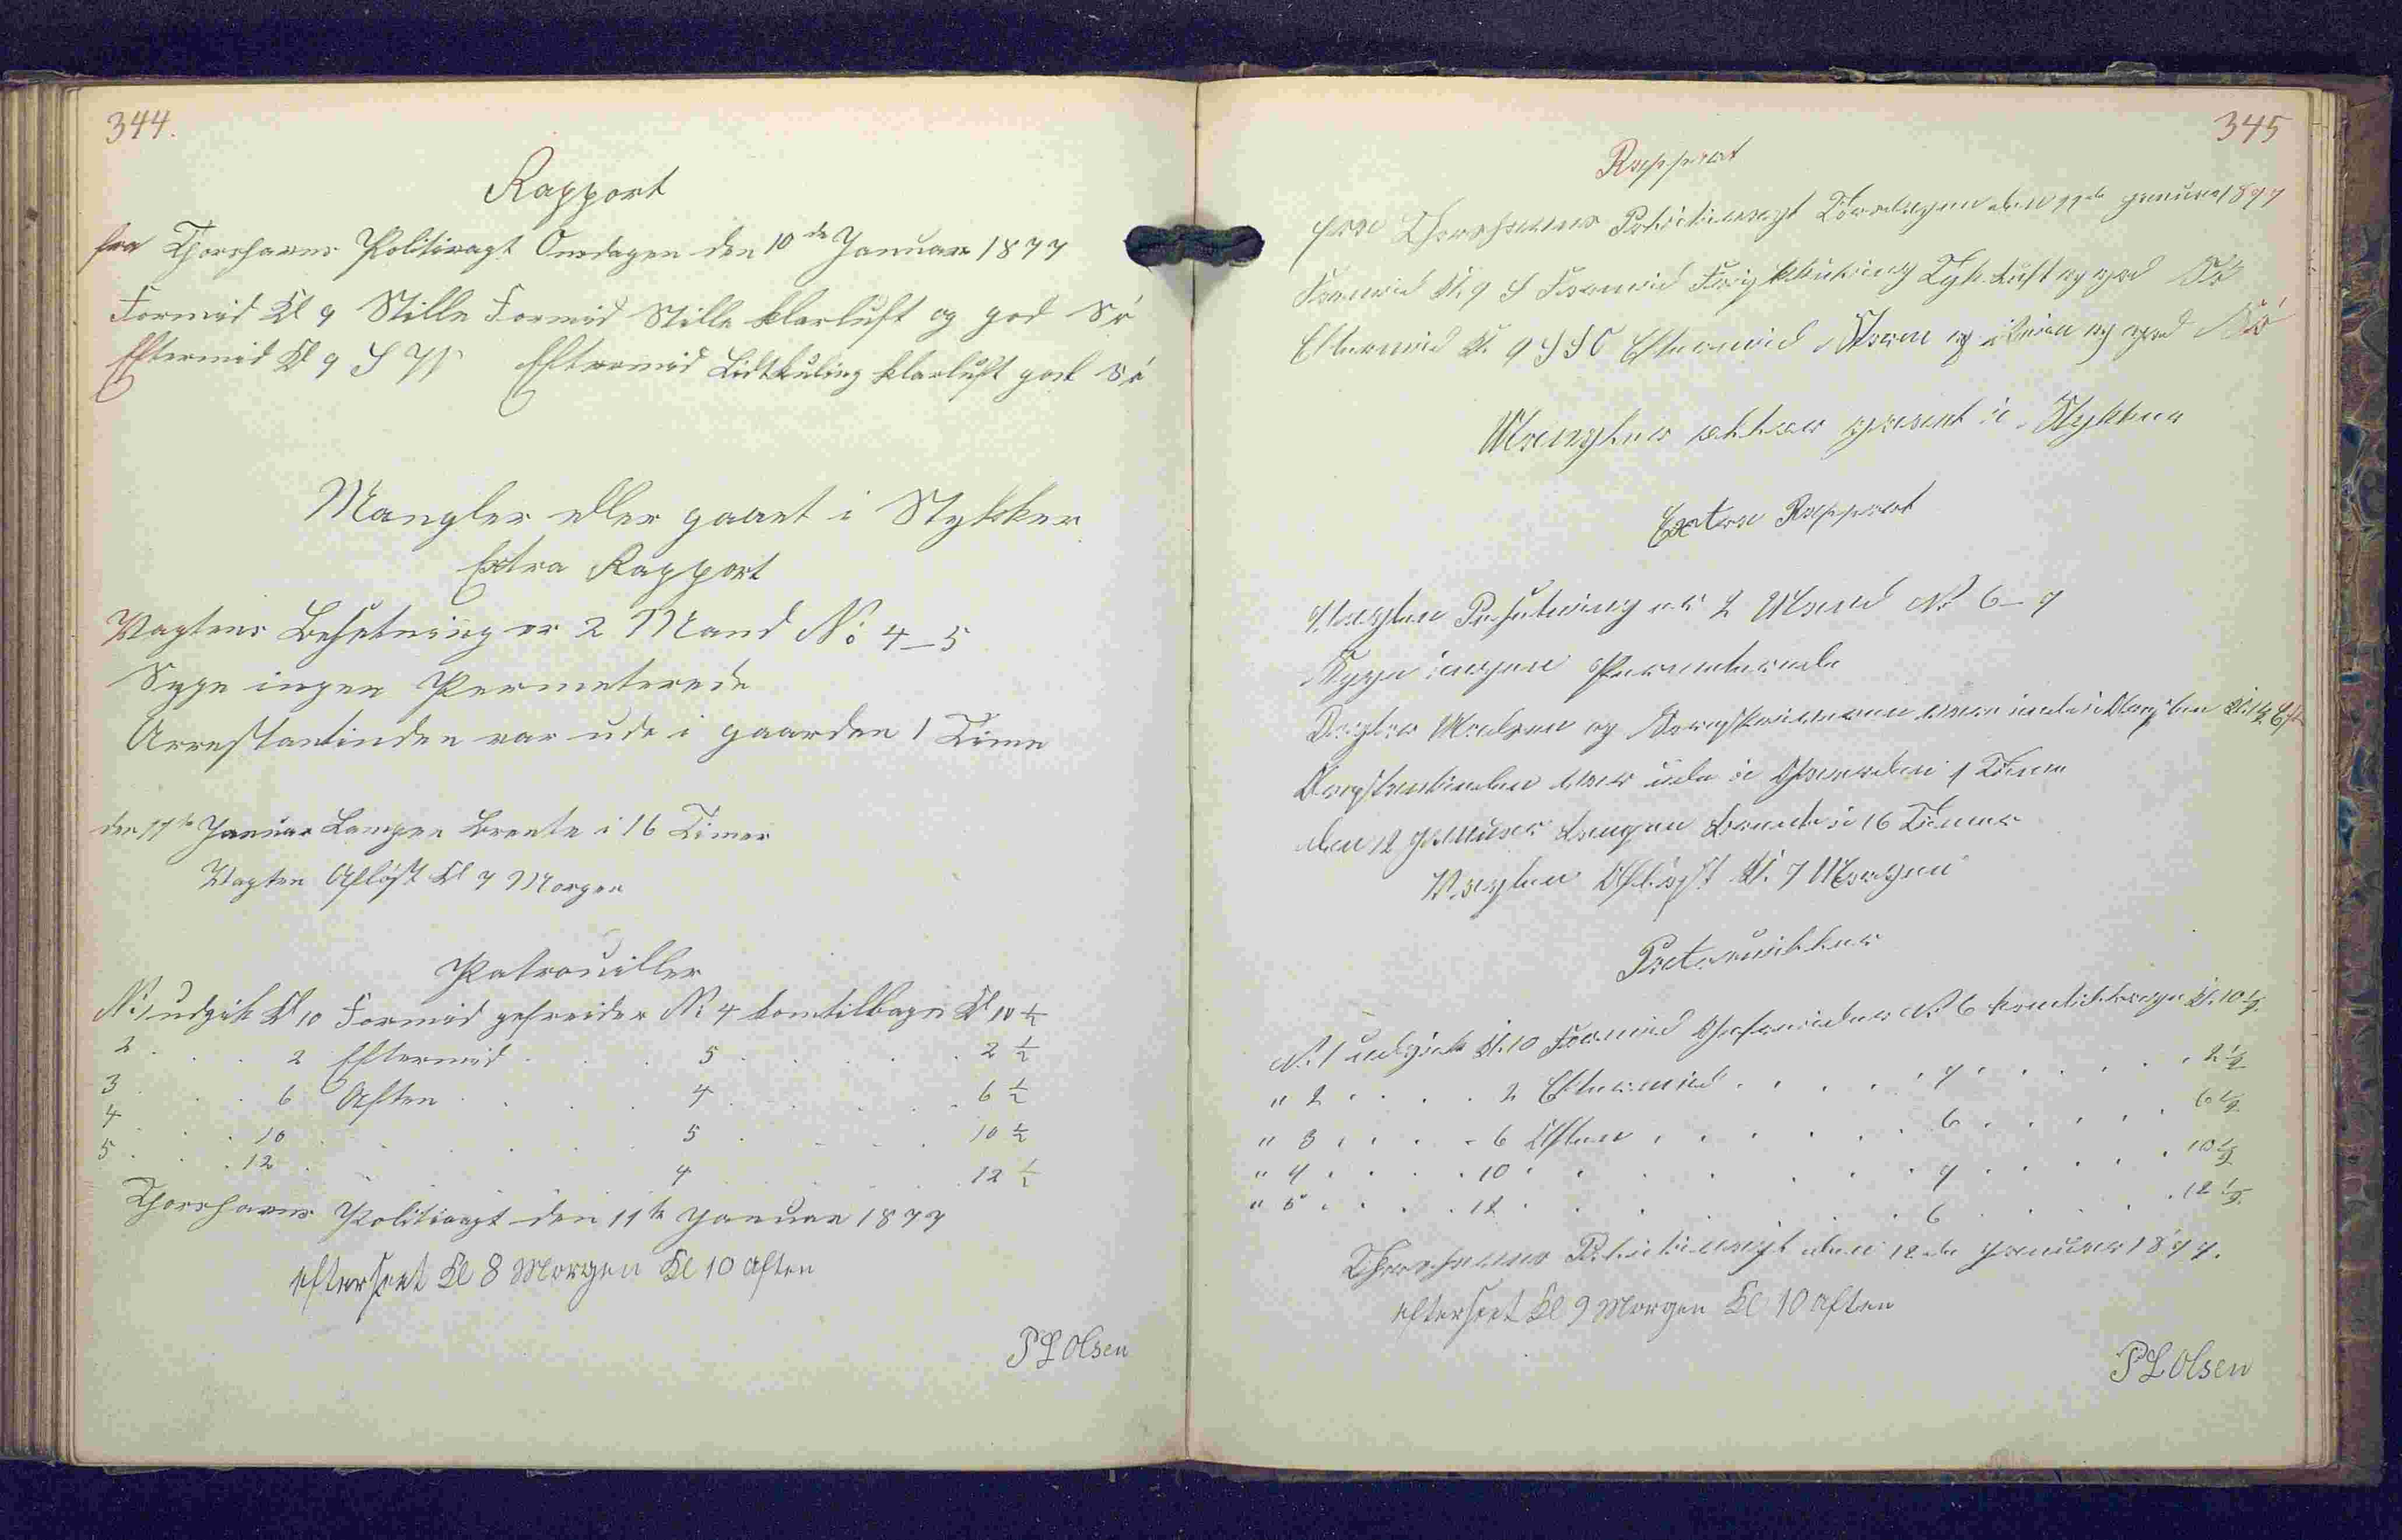 344.
Rapport
fra Thorshavns Politivagt Onsdagen den 10de Januar 1877
Formid Kl 9 Stille Formid Stille klarluft og god Sö
Eftermid Kl 9 S W Eftermid Lidtkuling klarluft god Sö
Mangler eller gaaet i Stykker
Extra Rapport
Vagtens Besetning er 2 Mand No 4-5
Syge ingen Permeterede
Arrestantinden var ude i gaarden 1 Time
den 11te Januar Lampen brente i 16 Timer
Vagten Aflöst Kl 7 Morgen
Patrouiller
No 1 udgik Kl 10 Formid gefreider No 4 kom tilbage Kl 10 1/2
2 . . . 2 Eftermid . . . 5 . . . 2 1/2
3 . . . 6 Aften . . . 4 . . . 6 1/2
4 . . . 10 . . . 5 . . . 10 1/2
5 . . . 12 . . . 4 . . . 12 1/2
Thorshavns Politivagt den 11te Januar 1877
efterseet Kl 8 Morgen Kl 10 Aften
P L Olsen
345
Rapport
fra Thorshavns Politivagt Torsdagen den 11de Januar 1877
Formid Kl. 9 S Formid Frisk kuling Tyk Luft og god Sö
Eftermid Kl. 9 S S O Eftermid Storm og og god Sö
Mangler eller gaaet i Stykker
Extra Rapport
Vagten Besetning er 2 Mand No 6-7
Syge ingen Permeterede
Madsen og var inde i Vagten Kl. 1 1/2 Eft
Arrestantinden var ude i Gaarden 1 Time
den 12 Januar Lampen brente i 16 Timer
Vagten Aflöst Kl. 7 Morgen
Patrouiller
No 1 udgick Kl. 10 Formid Gefreider No 6 kom tilbage Kl. 10 1/2
" 2 . . . 2 Eftermid . . . 7 . . . 2 1/2
" 3 . . . 6 Aften . . . 6 . . . 6 1/2
" 4 . . . 10 . . . 7 . . . 10 1/2
" 5 . . . 12 . . . 6 . . . 12 1/2
Thorshavns Politivagt den 12de Januar 1877.
efterseet Kl 9 Morgen Kl 10 Aften
P L Olsen